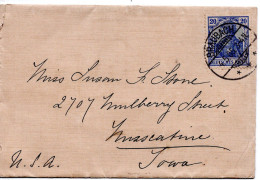 20 20
Miss Susan K. Stone
2707 Mulberry Street,
Muscatine
Iowa.
U.S.A.